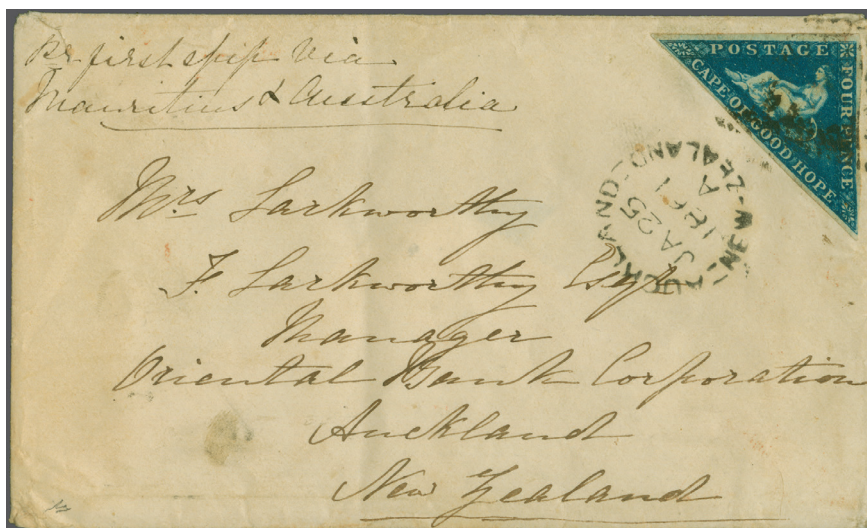 Pr first ship via
Mauritius & Australia
POSTAGE
FOUR PENCE
CAPE OF GOOD HOPE
AUCKLAND NEW-ZEALAND
JA 25
1861
A
Mrs Larkworthy
F. Larkworthy Esqr
Manager
Oriental Bank Corporation
Auckland
New Zealand